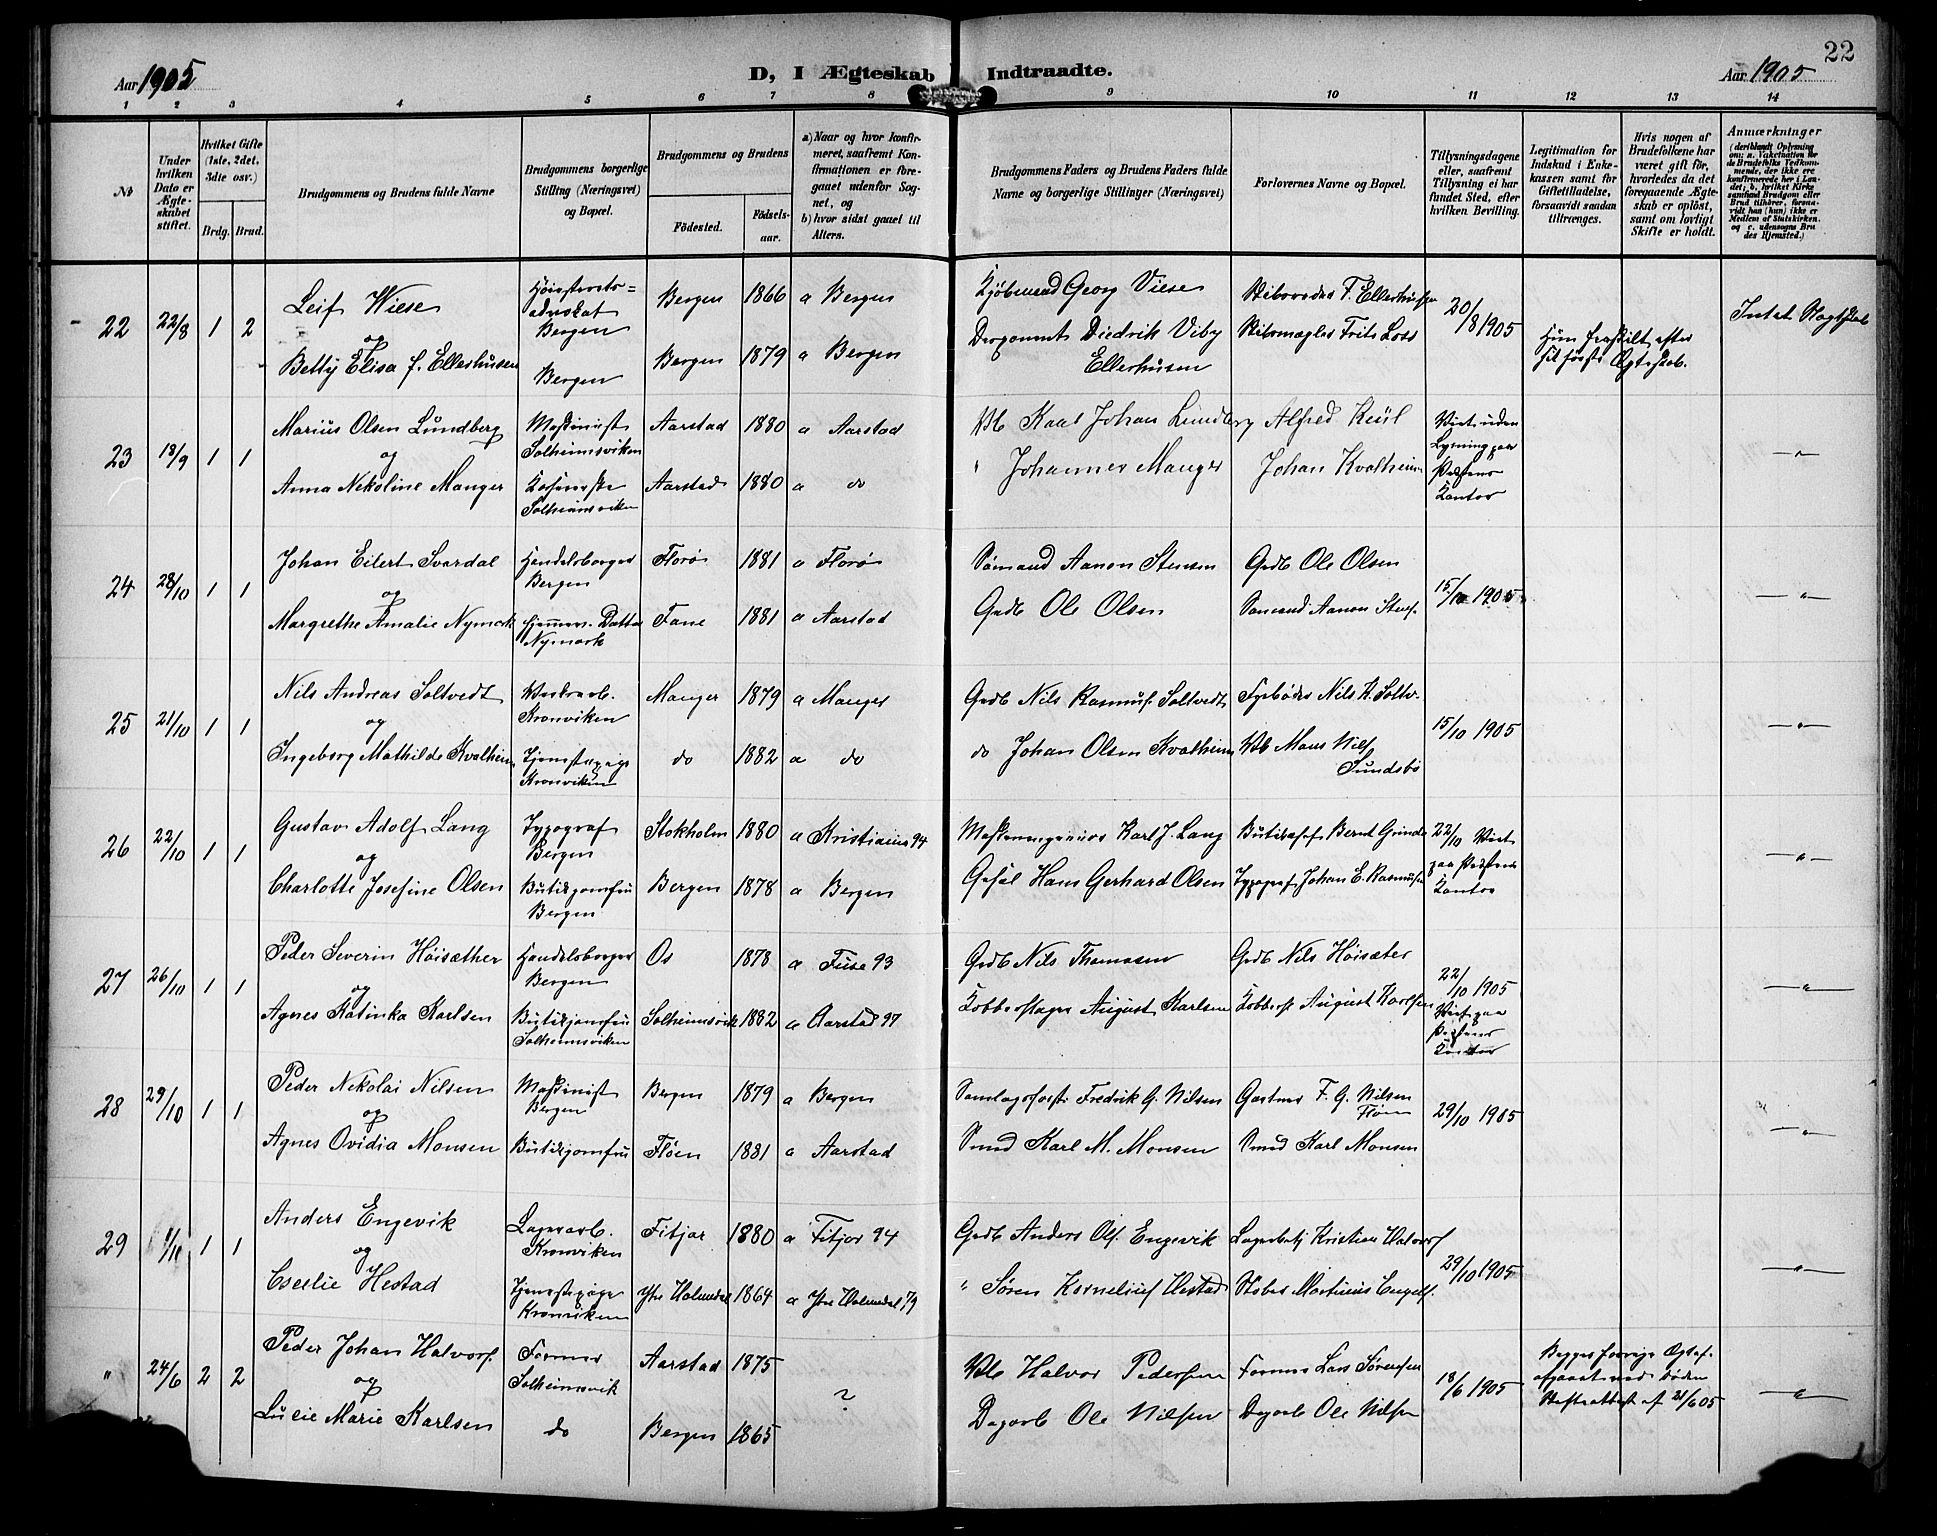 22
Aar 1905 D, I Ægteskab Indtraadte. Aar 1905
1 2 3 4 5 6 7 8 9 10 11 12 13 14
№
Under hvilken Dato er Ægteskabet stiftet.
Hvilket Gifte (1ste, 2det, 3die osv.)
Brdg. Brud.
Brudgommens og Brudens fulde Navne
Brudgommens borgerlige Stilling (Næringsvei) og Bopæl.
Brudgommens og Brudens
Födested. Födselsaar.
a) Naar og hvor konfirmeret, saafremt Konfirmationen er foregaaet udenfor Sognet, og
b) hvor sidst gaaet til Alters.
Brudgommens Faders og Brudens Faders fulde Navne og borgerlige Stillinger (Næringsvei)
Forlovernes Navne og Bopæl.
Tillysningsdagene eller, saafremt Tillysning ei har fundet Sted, efter hvilken Bevilling.
Legitimation for Indskud i Enkekassen samt for Giftetilladelse, forsaavidt saadan tiltrænges.
Hvis nogen af Brudefolkene har været gift för, hvorledes da det foregaaende Ægteskab er oplöst, samt om lovligt Skifte er holdt.
Anmærkninger
(deriblandt Oplysning om: a. Vakcination for de Brudefolks Vedkommende, der ikke ere konfirmerede her i Landet; b. hvilket Kirkesamfund Brudgom eller Brud tilhörer, forsaavidt han (hun) ikke er Medlem af Statskirken. og c. udensogns Brudes Hjemsted.)
22 22/8 1 2 Leif Wiese
og
Betty Elisa f. Ellerhusen
Høiesteretsadvokat Bergen
Bergen
Bergen 1866 a Bergen
Bergen 1879 a Bergen
Kjøbmand Georg Viese
Diedrik Viby Ellerhusen
F. Ellerhusen
Frits Loss
20/8 1905
Hun fraskilt efter sit første Ægteskab.
Intet Slægtskab
23 18/9 1 1 Marius Olsen Lundberg
og
Anna Nekoline Manger
Maskinist Solheimsviken
Solheimsviken
Aarstad 1880 a Aarstad
Aarstad 1880 a do
Johan Lundberg
" Johannes Manger
Alfred Keül
Johan Kvalheim
Viet uden Lysning paa Præstens Kontor
—"—
24 28/10 1 1 Johan Eilert Svardal
og
Margrethe Amalie Nymark
Handelsborger Bergen
Hjemmev. Datter Nymark
Florø 1881 a Florø
Fane 1881 a Aarstad
Sømand Aanon Stensen
Grdb Ole Olsen
Grdb Ole Olsen
Sømand Aanon Stens.
15/10 1905
—"—
25 21/10 1 1 Nils Andreas Soltvedt
og
Ingeborg Mathilde Kvalheim
Kronviken
Tjenestepige Kronviken
Manger 1879 a Manger
do 1882 a do
Grdb Nils Rasmus. Soltvedt
do Johan Olsen Kvalheim
Fyrbøder Nils R. Soltv.
Mons Nils. Sundsbø
15/10 1905
—"—
26 22/10 1 1 Gustav Adolf Lang
og
Charlotte Josefine Olsen
Typograf Bergen
Butikjomfru Bergen
Stokholm 1880 a Kristiania 94
Bergen 1878 a Bergen
Maskeningeniør Karl J. Lang
Hans Gerhard Olsen
Bernt Grinde
Typograf Johan E. Rasmusen
22/10 Viet paa Præstens Kontor
—"—
27 26/10 1 1 Peder Severin Høisæther
og
Agnes Katinka Karlsen
Handelsborger Bergen
Butikjomfru Solheimsviken
Os 1878 a Fuse 93
Solheimsvik 1882 a Aarstad 97
Grdb Nils Thomasen
Kobberslager August Karlsen
Grdb Nils Høisæter
Kobbersl August Karlsen
22/10 1905 Viet paa Præstens Kontor
—"—
28 29/10 1 1 Peder Nekolai Nilsen
og
Agnes Ovidia Monsen
Maskinist Bergen
Butikjomfru
Bergen 1879 a Bergen
Fløen 1881 a Aarstad
Fredrik G. Nilsen
Smed Karl M. Monsen
Gartner F. G. Nilsen Fløen
Smed Karl Monsen
29/10 1905
—"—
29 1 1 Anders Engevik
og
Cecelie Hestad
Lagerarb. Kronviken
Tjenestepige Kronviken
Fitjar 1880 a Fitjar 94
Ytre Holmedal 1864 a Ytre Holmedal 79
Grdb Anders Ols. Engevik
" Søren Kornelius Hestad
Kristian Halvors.
Støber Martinius Engels.
29/10 1905
—"—
" 24/6 2 2 Peder Johan Halvors.
og
Lucie Marie Karlsen
Former Solheimsvik
do
Aarstad 1875
?
Bergen 1865
Halvor Pedersen
Dagarb Ole Nilsen
Former Lars Sørensen
Dagarb Ole Nilsen
18/6 1905
Begges forrige Ægtesk. afgaaet ved døden
Skifteattest af 21/6 05
—"—